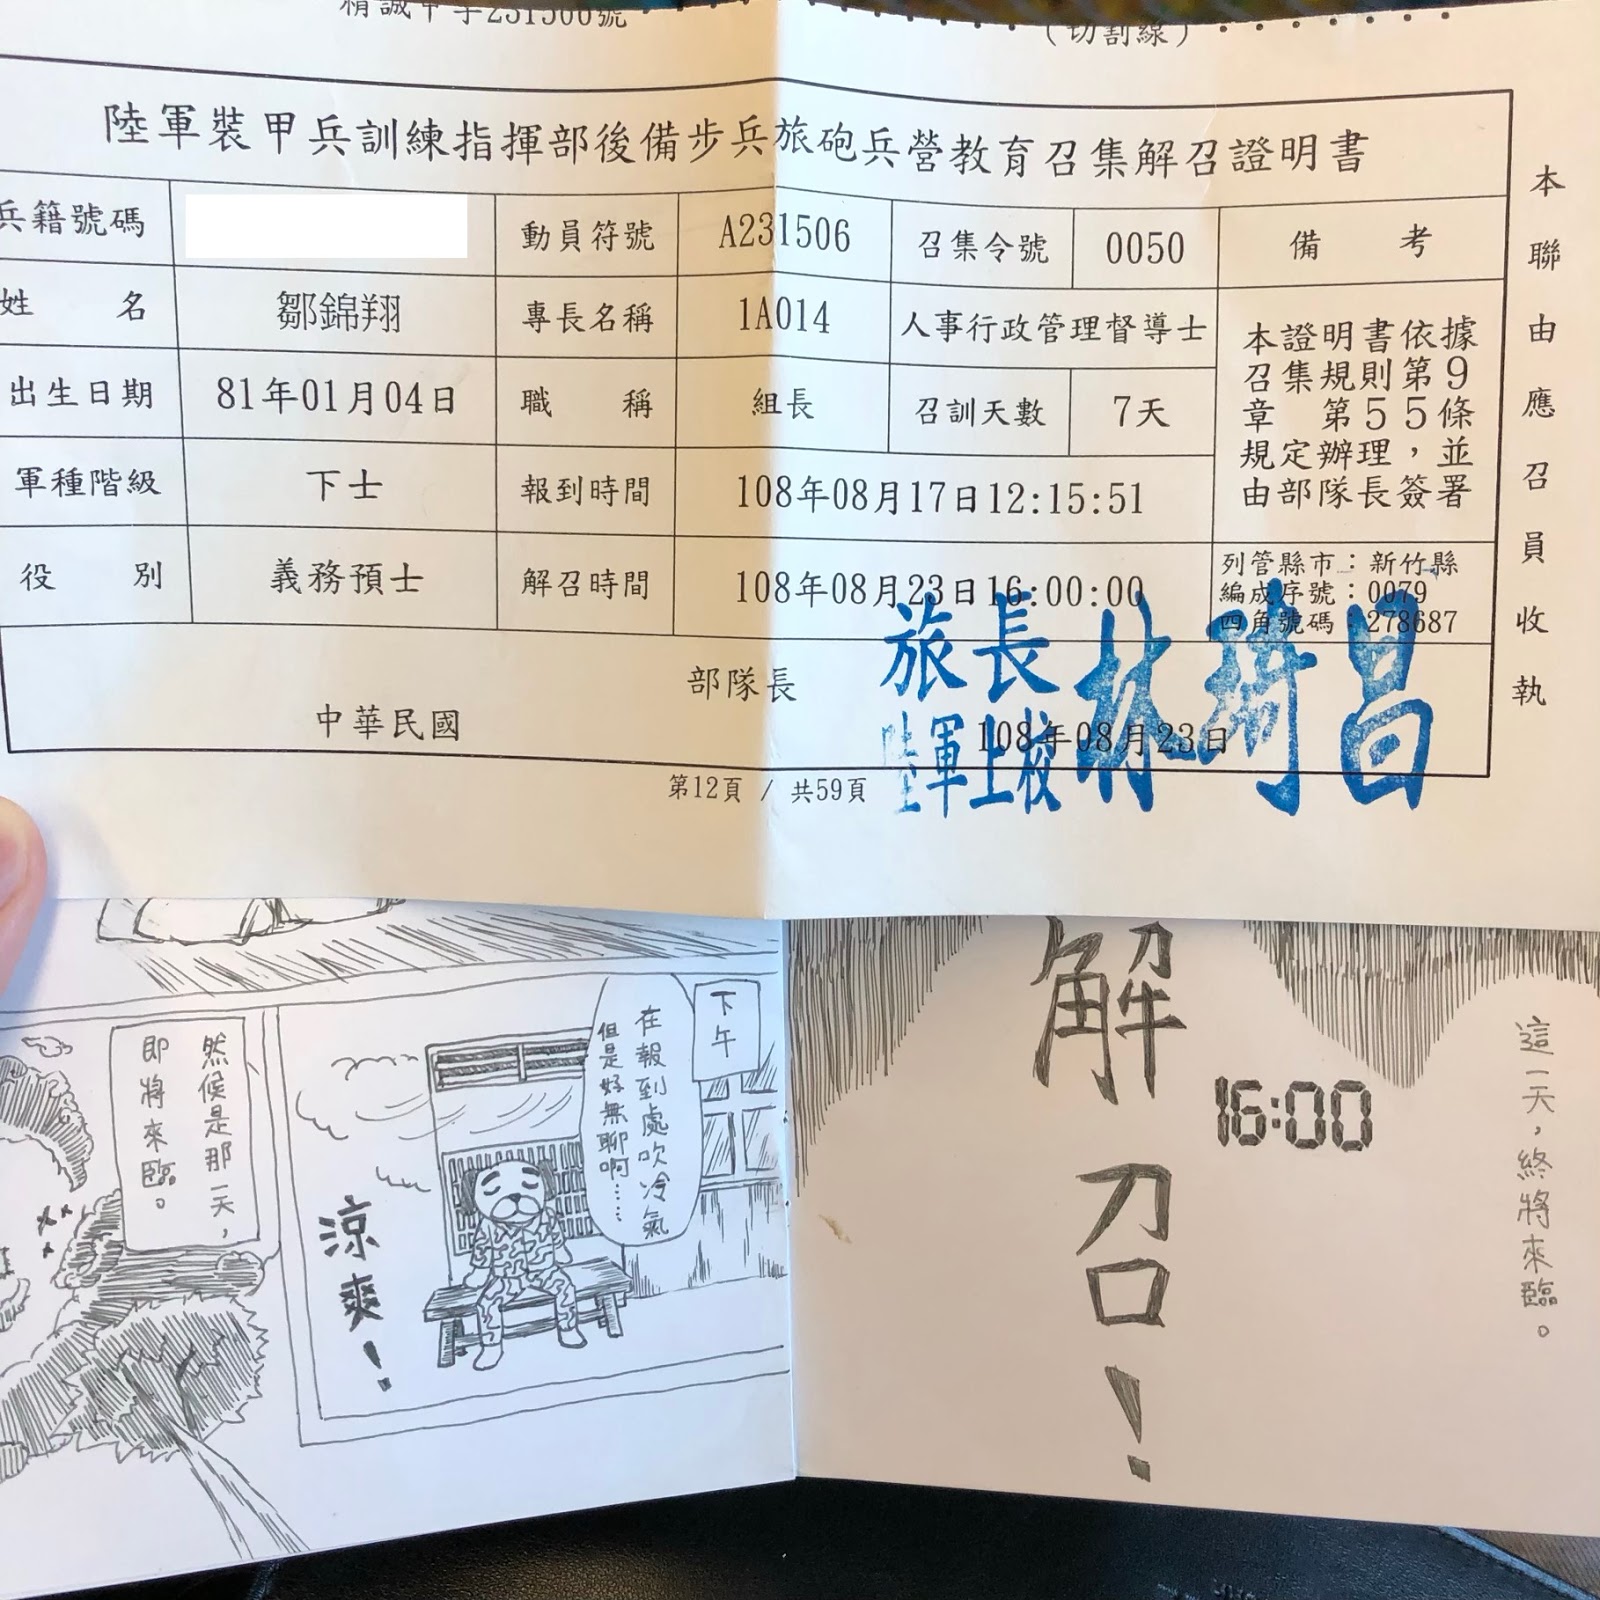 精誠甲字231506號
(切割線)
陸軍裝甲兵訓練指揮部後備步兵旅砲兵營教育召集解召證明書
兵籍號碼
動員符號 A231506 召集令號 0050 備 考
姓 名 鄒錦翔 專長名稱 1A014 人事行政管理督導士
出生日期 81年01月04日 職 稱 組長 召訓天數 7天
軍種階級 下士 報到時間 108年08月17日12:15:51
役 別 義務預士 解召時間 108年08月23日16:00:00
本證明書依據
召集規則第9
章 第55條
規定辦理，並
由部隊長簽署
列管縣市：新竹縣
編成序號：0079
四角號碼：278687
部隊長
旅長
陸軍上校
林琦昌
中華民國 108年08月23日
第12頁 / 共59頁
本聯由應召員收執
下午
在報到處吹冷氣
但是好無聊啊……
涼爽！
然候是那一天，
即將來臨。
這一天，終將來臨。
16:00
解召！